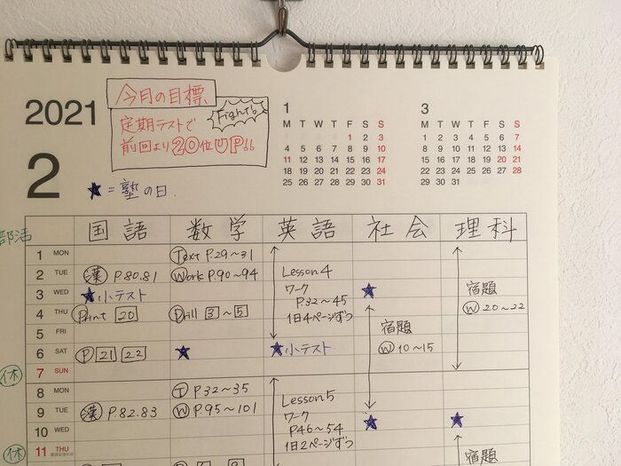 2021
2
今月の目標
Fight!
定期テストで
前回より20位UP!!
★=塾の日
1
M T W T F S S
1 2 3
4 5 6 7 8 9 10
11 12 13 14 15 16 17
18 19 20 21 22 23 24
25 26 27 28 29 30 31
3
M T W T F S S
1 2 3 4 5 6 7
8 9 10 11 12 13 14
15 16 17 18 19 20 21
22 23 24 25 26 27 28
29 30 31
部活 国語 数学 英語 社会 理科
1 MON Text P.29〜31
2 TUE 漢 P.80.81 Work P.90〜94 Lesson4
3 WED ★小テスト ワーク ★ 宿題
P.32〜45
4 THU Print 20 Drill 3〜5 1日4ページずつ W 20〜22
5 FRI 宿題
6 SAT P 21 22 ★ ★小テスト W 10〜15
休 7 SUN
8 MON T P.32〜35 Lesson5
9 TUE 漢 P.82.83 W P.95〜101 ワーク ★ ★
10 WED P.46〜54
1日2ページずつ
休 11 THU 宿題